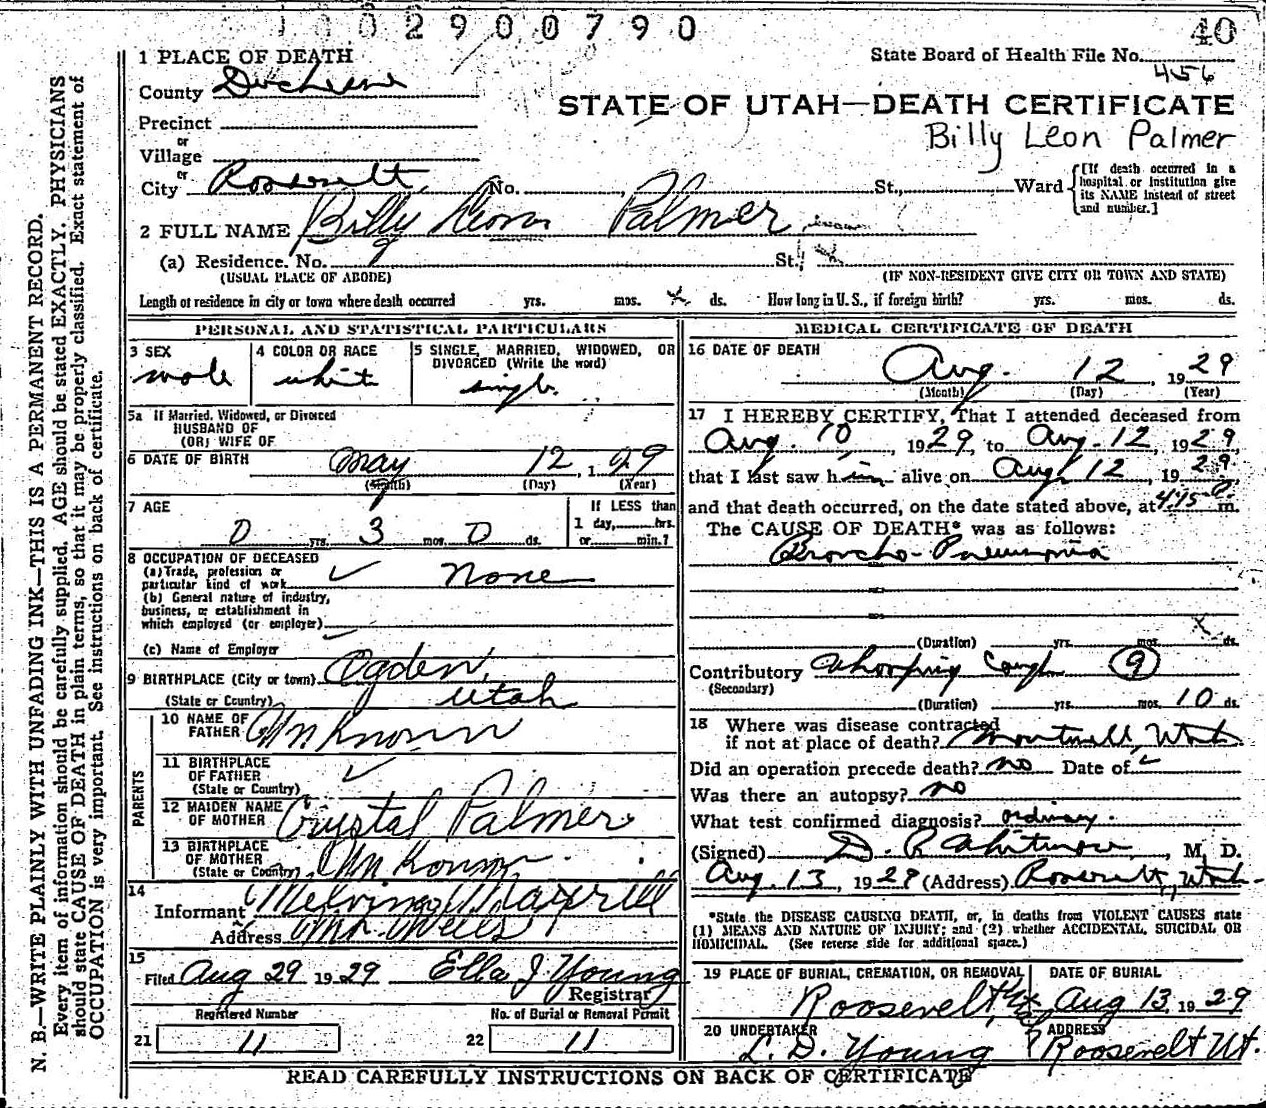 0 0 2 9 0 0 7 9 0
40
State Board of Health File No. 456
STATE OF UTAH—DEATH CERTIFICATE
Billy Leon Palmer
1 PLACE OF DEATH
County Duchesne
Precinct
or
Village
or
City Roosevelt, No. St., Ward
[If death occurred in a hospital or institution give its NAME instead of street and number.]
2 FULL NAME Billy Leon Palmer
(a) Residence. No. St.,
(USUAL PLACE OF ABODE) (IF NON-RESIDENT GIVE CITY OR TOWN AND STATE)
Length of residence in city or town where death occurred yrs. mos. ds. How long in U. S., if foreign birth? yrs. mos. ds.
PERSONAL AND STATISTICAL PARTICULARS
3 SEX
male
4 COLOR OR RACE
white
5 SINGLE, MARRIED, WIDOWED, OR
DIVORCED (Write the word)
single
5a If Married, Widowed, or Divorced
HUSBAND OF
(OR) WIFE OF
6 DATE OF BIRTH May 12, 1 29
(Month) (Day) (Year)
7 AGE
0 yrs. 3 mos. 0 ds.
If LESS than
1 day, hrs.
or min.?
8 OCCUPATION OF DECEASED
(a) Trade, profession or
particular kind of work None
(b) General nature of industry,
business, or establishment in
which employed (or employer)
(c) Name of Employer
9 BIRTHPLACE (City or town) Ogden,
(State or Country) Utah
PARENTS
10 NAME OF
FATHER Unknown
11 BIRTHPLACE
OF FATHER
(State or Country)
12 MAIDEN NAME
OF MOTHER Crystal Palmer
13 BIRTHPLACE
OF MOTHER
(State or Country) Unknown
14
Informant Melvin
Address
15
Filed Aug 29 1929 Ella J. Young
Registrar
Registered Number
21 11
No. of Burial or Removal Permit
22 11
MEDICAL CERTIFICATE OF DEATH
16 DATE OF DEATH
Aug. 12, 1929
(Month) (Day) (Year)
17 I HEREBY CERTIFY, That I attended deceased from
Aug. 10, 1929, to Aug. 12, 1929
that I last saw him alive on Aug 12, 1929.
and that death occurred, on the date stated above, at 4:45 P. m.
The CAUSE OF DEATH* was as follows:
Broncho-Pneumonia
(Duration) yrs. mos. ds.
Contributory Whooping Cough 9
(Secondary)
(Duration) yrs. mos. 10 ds.
18 Where was disease contracted
if not at place of death? Utah
Did an operation precede death? no Date of
Was there an autopsy? no
What test confirmed diagnosis? ordinary.
(Signed) D. R. Whitmore, M. D.
Aug. 13, 1929 (Address) Roosevelt, Utah
*State the DISEASE CAUSING DEATH, or, in deaths from VIOLENT CAUSES state
(1) MEANS AND NATURE OF INJURY; and (2) whether ACCIDENTAL, SUICIDAL OR
HOMICIDAL. (See reverse side for additional space.)
19 PLACE OF BURIAL, CREMATION, OR REMOVAL
Roosevelt, Utah
DATE OF BURIAL
Aug 13, 1929
20 UNDERTAKER
L. D. Young
ADDRESS
Roosevelt Ut.
READ CAREFULLY INSTRUCTIONS ON BACK OF CERTIFICATE
N. B.—WRITE PLAINLY WITH UNFADING INK—THIS IS A PERMANENT RECORD.
Every item of information should be carefully supplied. AGE should be stated EXACTLY. PHYSICIANS
should state CAUSE OF DEATH in plain terms, so that it may be properly classified. Exact statement of
OCCUPATION is very important. See instructions on back of certificate.